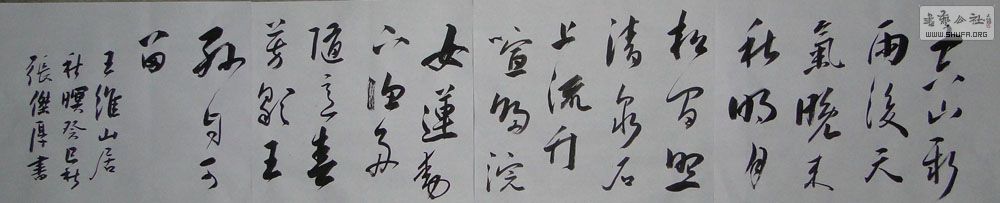 空山新
雨後天
氣晚来
秋明月
松間照
清泉石
上流竹
喧歸浣
女蓮動
下漁舟
隨意春
芳歇王
孫自可
留
王維山居
秋暝癸巳秋
張傑書
書藝公社
WWW.SHUFA.ORG